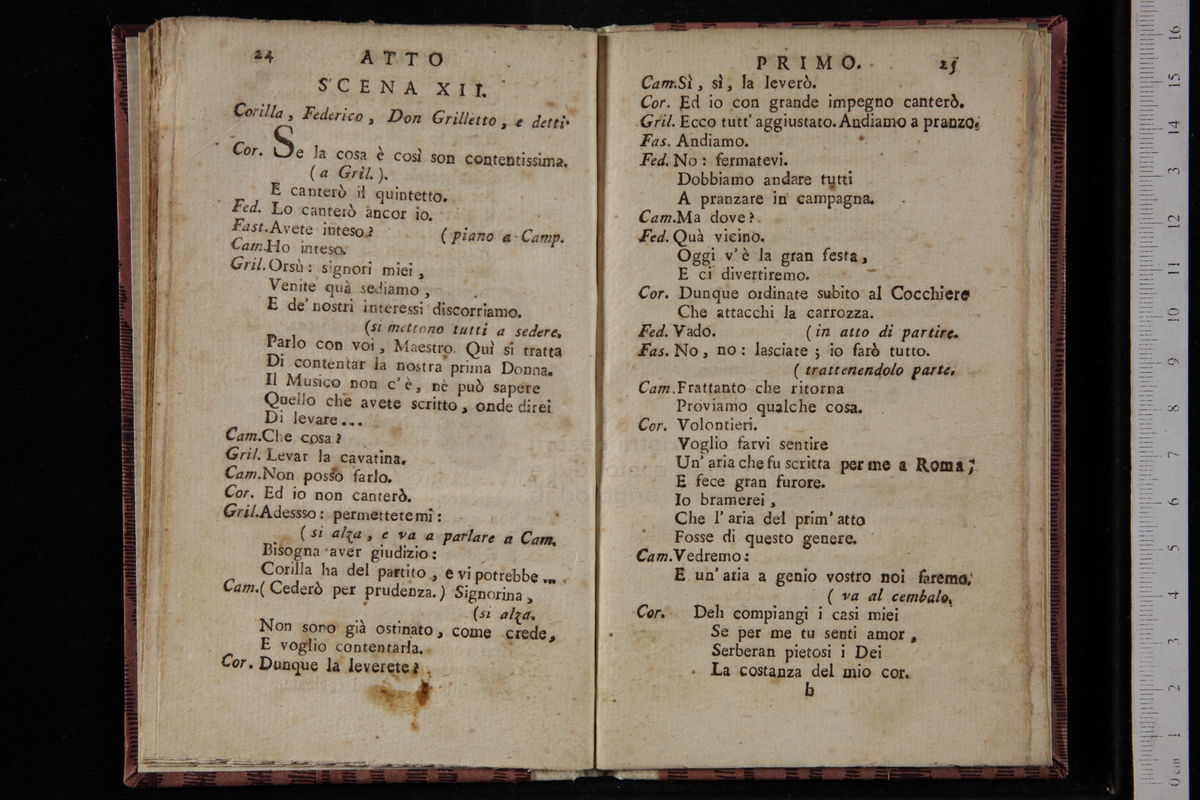 24 ATTO
SCENA XII.
Corilla, Federico, Don Grilletto, e detti.
Cor. Se la cosa è così son contentissima.
(a Gril.).
E canterò il quintetto.
Fed. Lo canterò ancor io.
Fast. Avete inteso? (piano a Camp.
Cam. Ho inteso.
Gril. Orsù: signori miei,
Venite quà sediamo,
E de' nostri interessi discorriamo.
(si mettono tutti a sedere.
Parlo con voi, Maestro. Quì si tratta
Di contentar la nostra prima Donna.
Il Musico non c'è, nè può sapere
Quello che avete scritto, onde direi
Di levare...
Cam. Che cosa?
Gril. Levar la cavatina.
Cam. Non posso farlo.
Cor. Ed io non canterò.
Gril. Adessso: permettetemi:
(si alza, e va a parlare a Cam.
Bisogna aver giudizio:
Corilla ha del partito, e vi potrebbe...
Cam. (Cederò per prudenza.) Signorina,
(si alza.
Non sono già ostinato, come crede,
E voglio contentarla.
Cor. Dunque la leverete?
PRIMO. 25
Cam. Sì, sì, la leverò.
Cor. Ed io con grande impegno canterò.
Gril. Ecco tutt' aggiustato. Andiamo a pranzo.
Fas. Andiamo.
Fed. No: fermatevi.
Dobbiamo andare tutti
A pranzare in campagna.
Cam. Ma dove?
Fed. Quà vicino.
Oggi v'è la gran festa,
E ci divertiremo.
Cor. Dunque ordinate subito al Cocchiere
Che attacchi la carrozza.
Fed. Vado. (in atto di partire.
Fas. No, no: lasciate; io farò tutto.
(trattenendolo parte.
Cam. Frattanto che ritorna
Proviamo qualche cosa.
Cor. Volontieri.
Voglio farvi sentire
Un' aria che fu scritta per me a Roma;
E fece gran furore.
Io bramerei,
Che l'aria del prim' atto
Fosse di questo genere.
Cam. Vedremo:
E un' aria a genio vostro noi faremo.
(va al cembalo.
Cor. Deh compiangi i casi miei
Se per me tu senti amor,
Serberan pietosi i Dei
La costanza del mio cor.
b
0 cm 1 2 3 4 5 6 7 8 9 10 11 12 13 14 15 16